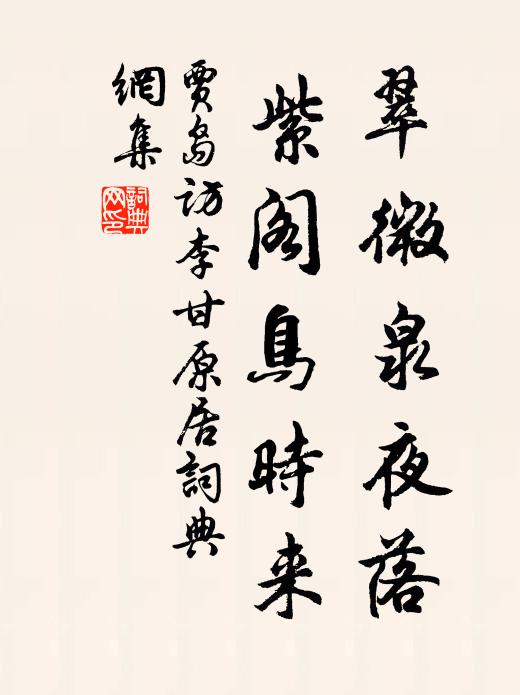 翠微泉夜落
紫阁鳥時来
賈島訪李甘原居詞典
網集
詞典
网印